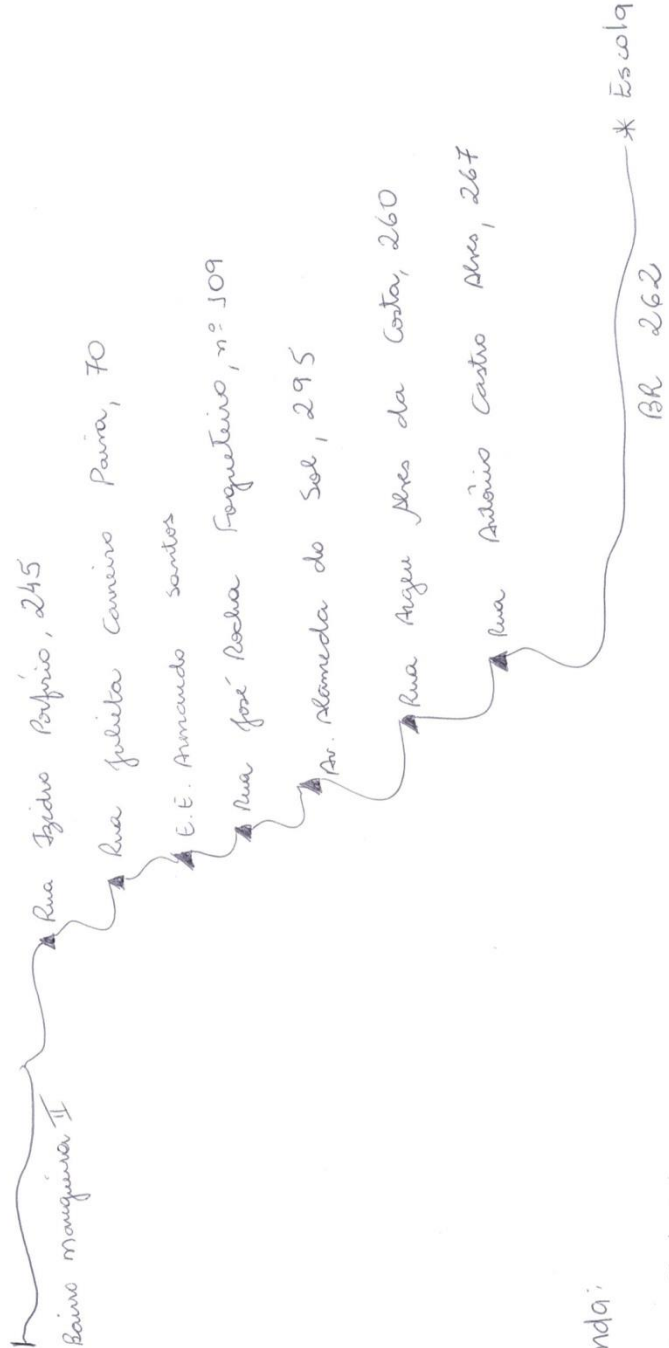 Bairro Mangueira II
Rua Izidro Porfírio, 245
Rua Julieta Carneiro Paiva, 70
E.E. Armando Santos
Rua José Rocha Fogueteiro, nº 109
Av. Alameda do Sol, 295
Rua Argeu Alves da Costa, 260
Rua Antônio Castro Alves, 267
* Escola
BR 262